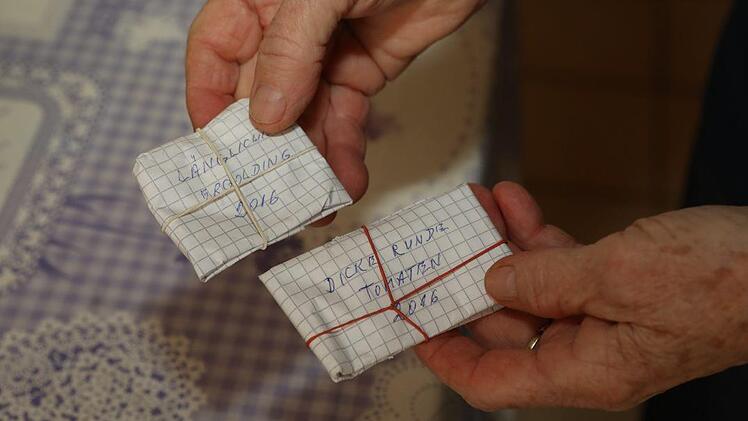 LÄNGLICHE
ERGOLDING
2016
DICKE RUNDE
TOMATEN
2016